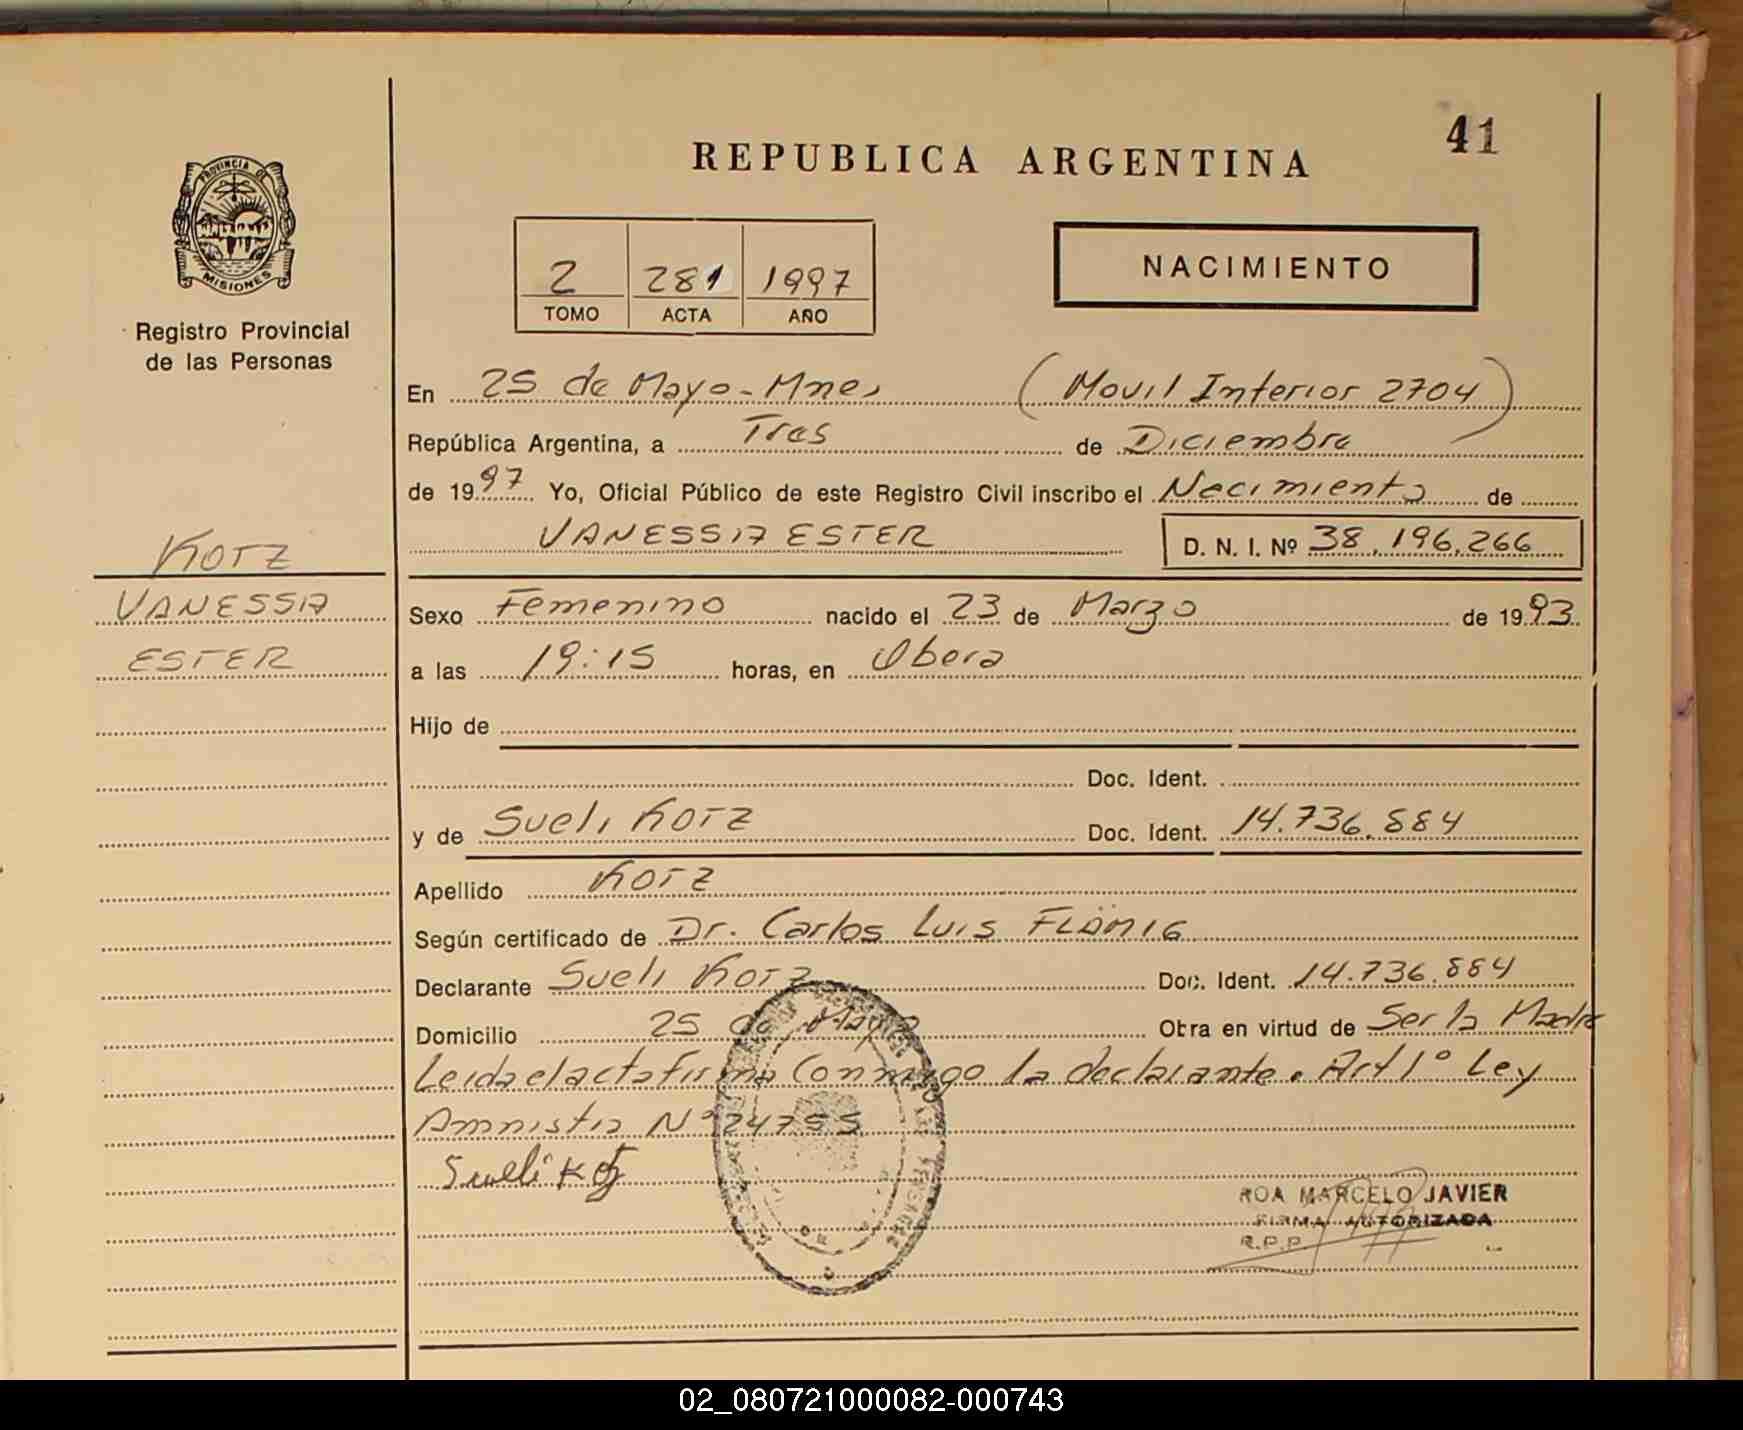 41
REPUBLICA ARGENTINA
PROVINCIA DE
MISIONES
Registro Provincial
de las Personas
2 281 1997
TOMO ACTA AÑO
NACIMIENTO
En 25 de Mayo - Mnes (Movil Interior 2704)
República Argentina, a Tres de Diciembre
de 1997 Yo, Oficial Público de este Registro Civil inscribo el Nacimiento de
VANESSA ESTER D. N. I. Nº 38.196.266
KOTZ
VANESSA
ESTER
Sexo Femenino nacido el 23 de Marzo de 1993
a las 19:15 horas, en Obera
Hijo de
Doc. Ident.
y de Sueli KOTZ Doc. Ident. 14.736.884
Apellido KOTZ
Según certificado de Dr. Carlos Luis FLÖMIG
Declarante Sueli KOTZ Doc. Ident. 14.736.884
Domicilio 25 de Mayo Obra en virtud de Ser la Madre
Leida el acta firma Conmigo la declarante. Art 1º Ley
Amnistia Nº 24755
Sueli Kotz
ROA MARCELO JAVIER
FIRMA AUTORIZADA
R.P.P
02_080721000082-000743